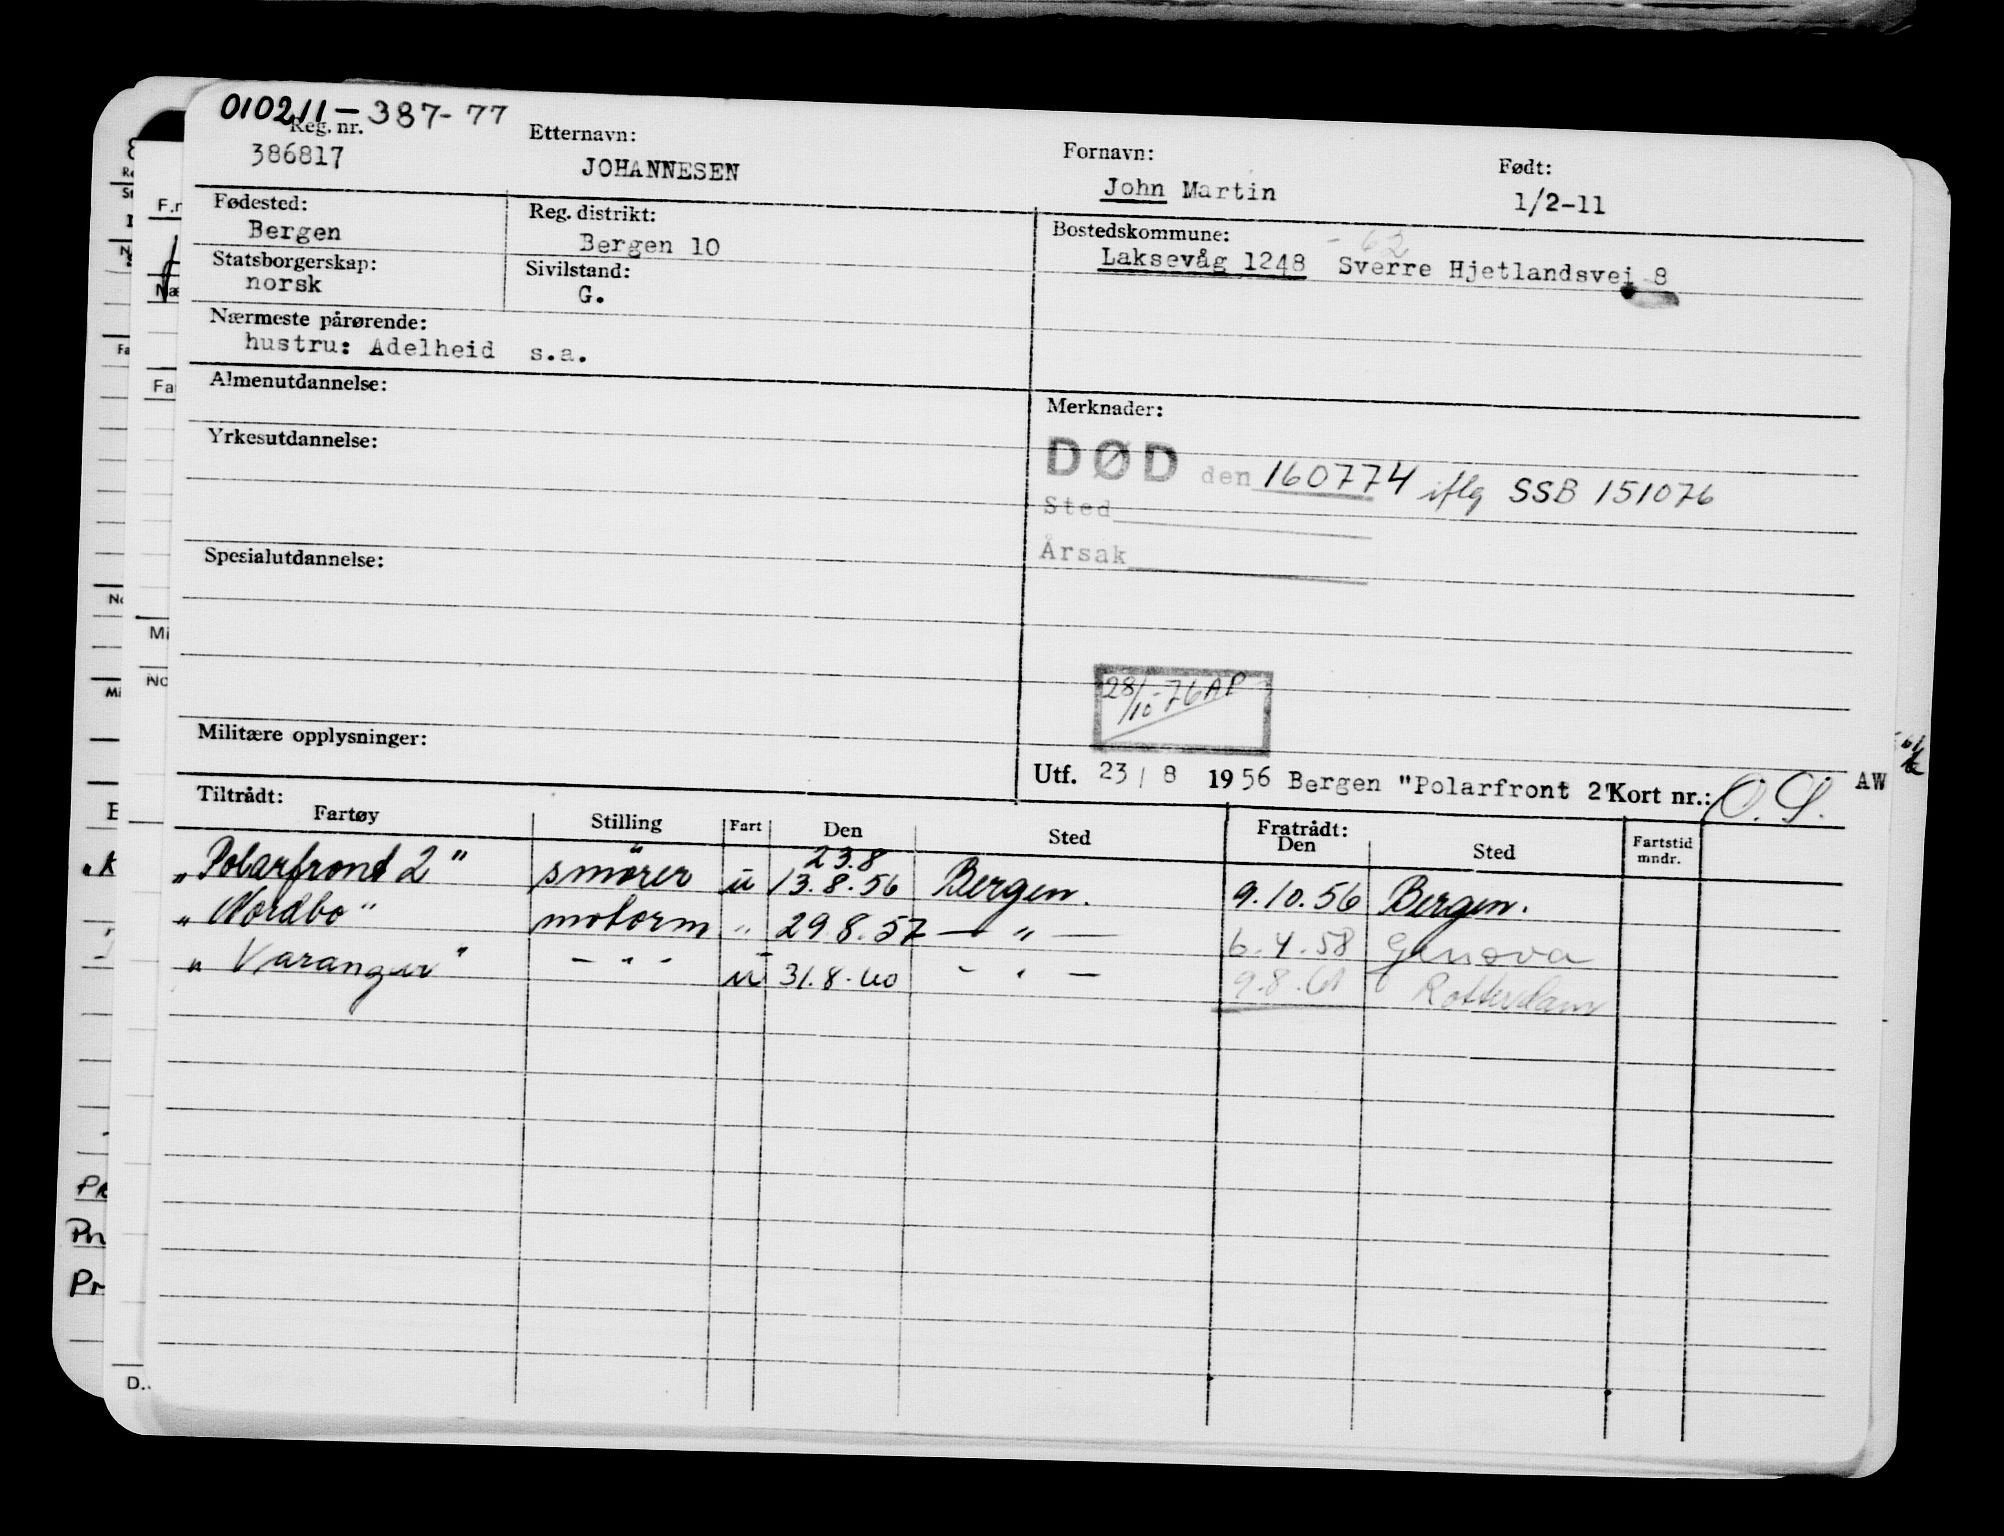 010211-387-77
Reg. nr.
386817
Etternavn:
JOHANNESEN
Fornavn:
John Martin
Født:
1/2-11
Fødested:
Bergen
Reg. distrikt:
Bergen 10
Bostedskommune:
- 62
Laksevåg 1248 Sverre Hjetlandsvei 8
Statsborgerskap:
norsk
Sivilstand:
G.
Nærmeste pårørende:
hustru: Adelheid s.a.
Almenutdannelse:
Yrkesutdannelse:
Spesialutdannelse:
Militære opplysninger:
Merknader:
DØD den 160774 iflg SSB 151076
Sted
Årsak
28/10-76 AP
Utf. 23 / 8 1956 Bergen "Polarfront 2" Kort nr.: O. S. AW
Tiltrådt:
Fartøy Stilling Fart Den Sted Fratrådt: Den Sted Fartstid mndr.
23.8
"Polarfront 2" smører u 13.8.56 Bergen. 9.10.56 Bergen.
"Nordbo" motorm " 29.8.57 — " — 6.4.58 Genova
"Varanger" - " - u 31.8.60 - " - 9.8.61 Rotterdam